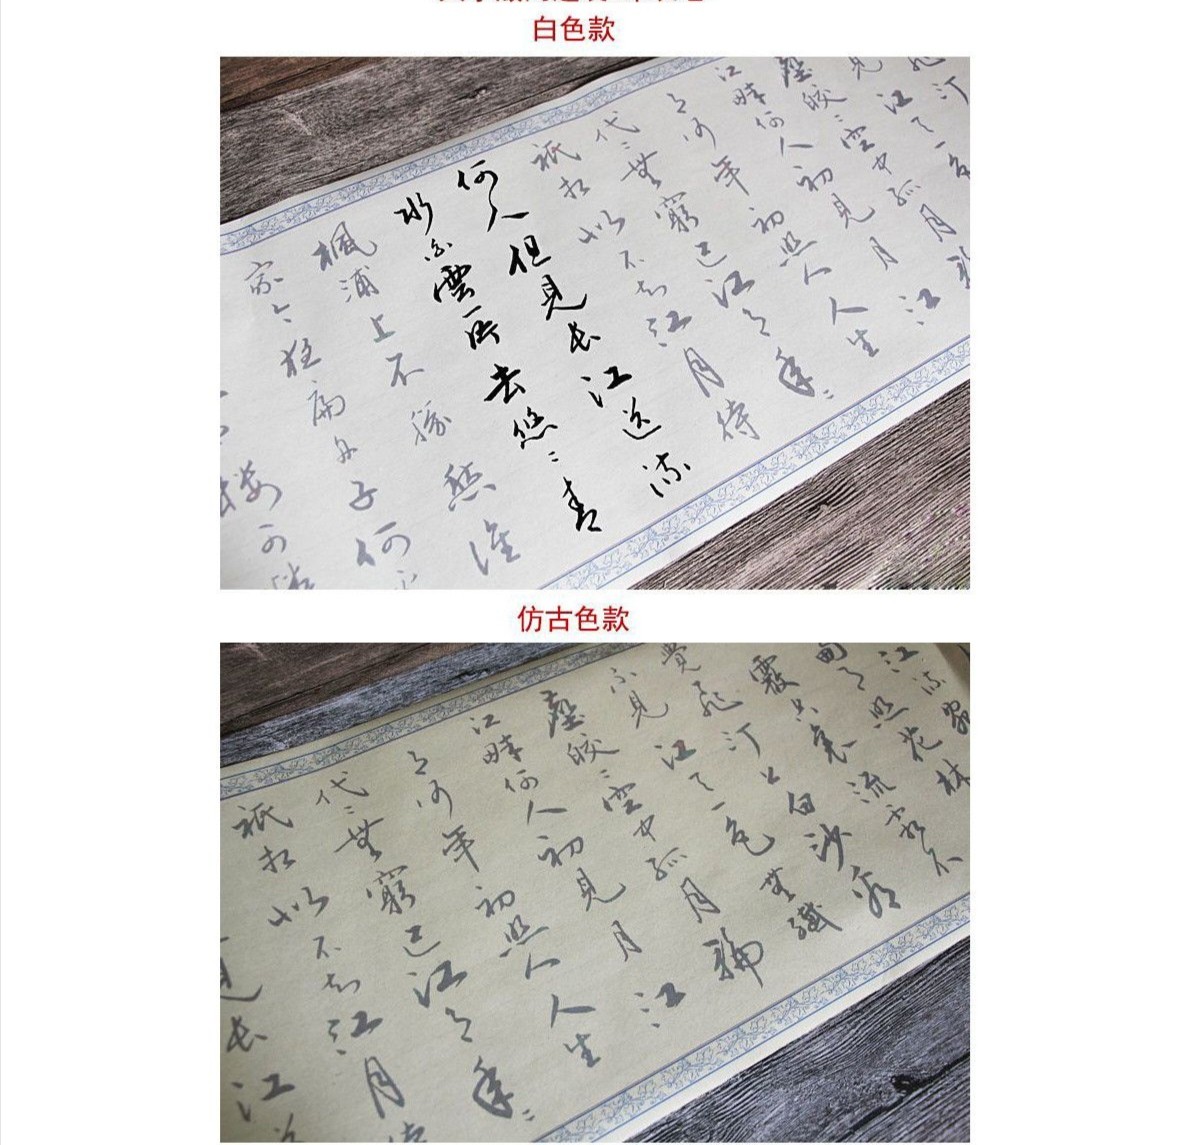 白色款
飛汀
見江天一色
塵皎々空中孤月輪
江畔何人初見月江
月何年初照人人生
代々無窮已江月年々
祗相似不知江月待
何人但見長江送流
水白雲一片去悠々青
楓浦上不勝愁誰
家今夜扁舟子何
樓可
仿古色款
江流宛
甸月照花林
霰空裏流霜不
覺飛汀上白沙看
不見江天一色無纖
塵皎々空中孤月輪
江畔何人初見月江
月何年初照人人生
代々無窮已江月年々
祗相似不知江月待
見長江送